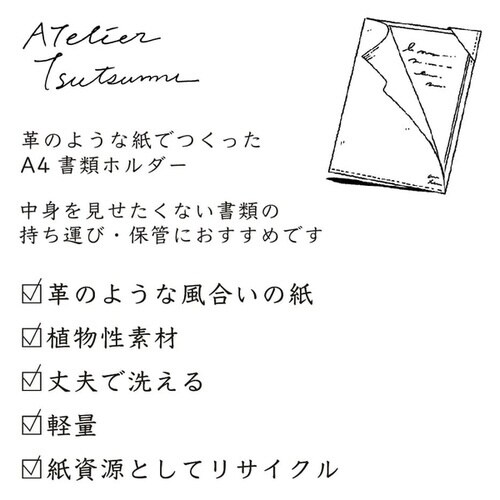 Atelier
Tsutsumu
革のような紙でつくった
A4 書類ホルダー
中身を見せたくない書類の
持ち運び・保管におすすめです
☑革のような風合いの紙
☑植物性素材
☑丈夫で洗える
☑軽量
☑紙資源としてリサイクル